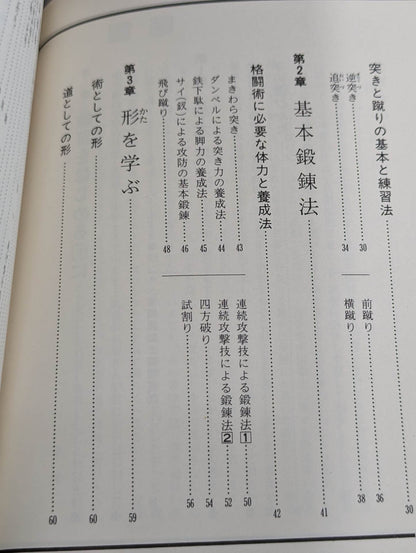 突きと蹴りの基本と練習法……30
逆突き……30
追突き……34
前蹴り……36
横蹴り……38
第2章 基本鍛錬法……41
格闘術に必要な体力と養成法……42
まきわら突き……43
ダンベルによる突き力の養成法……44
鉄下駄による脚力の養成法……45
サイ(釵)による攻防の基本鍛錬……46
飛び蹴り……48
連続攻撃技による鍛錬法1……50
連続攻撃技による鍛錬法2……52
四方破り……54
試割り……56
第3章 形を学ぶ……59
かた
術としての形……60
道としての形……60